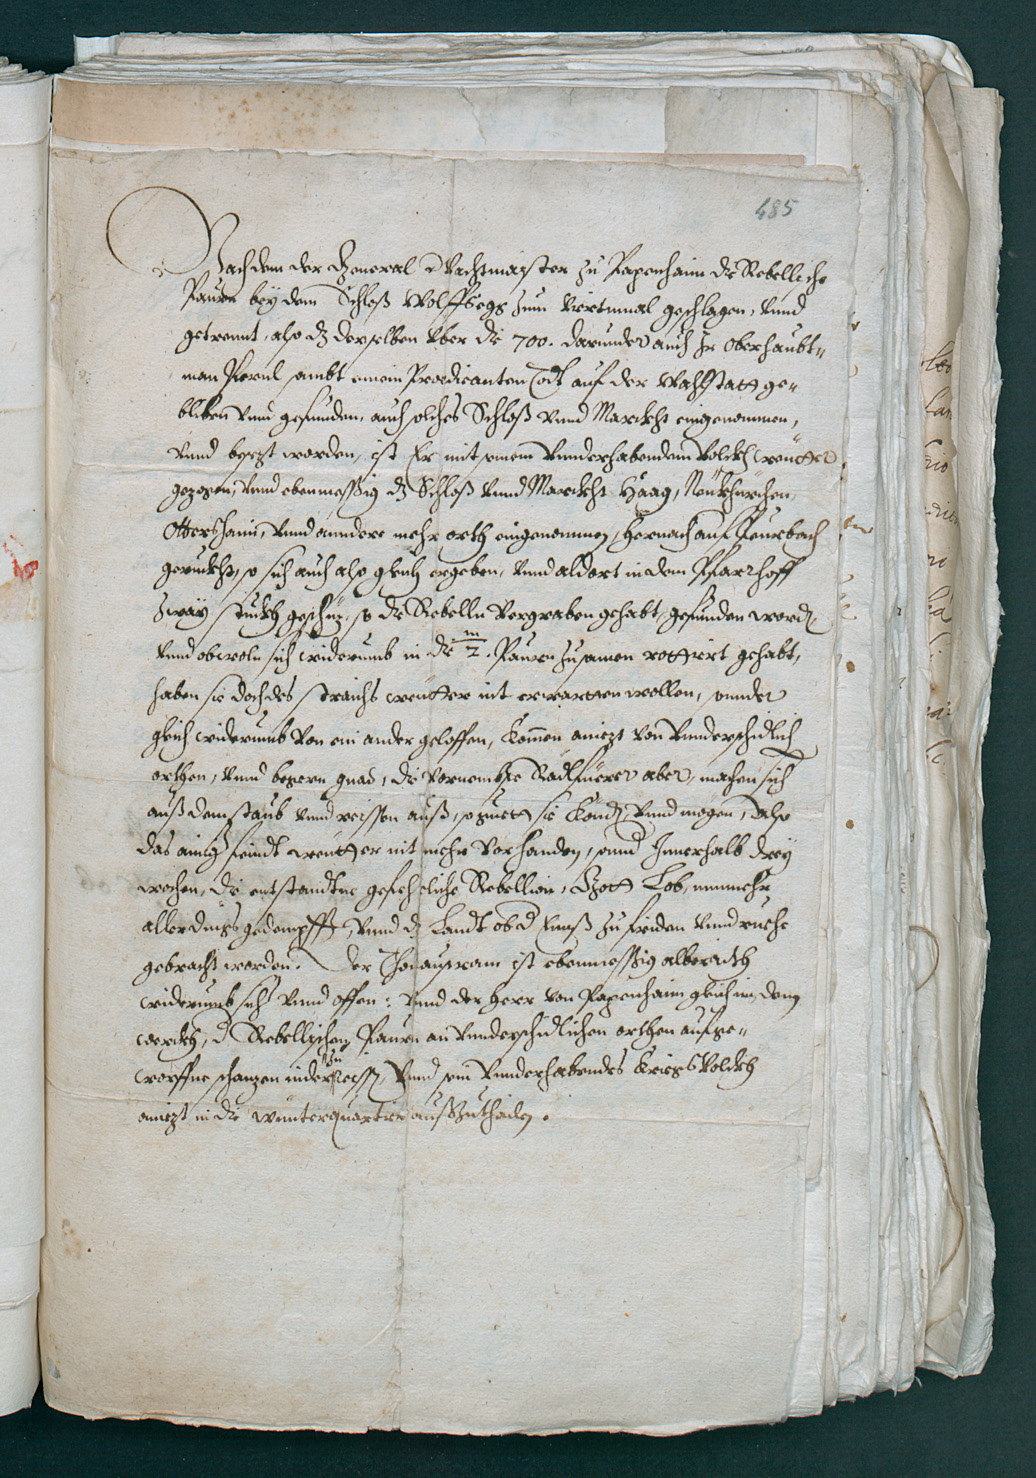 485
Nachdem der General Wachtmaister zu Papenhaim die Rebellische
Paurn bey dem Schloß Wolffsegg zum viertmal geschlagen, vnnd
getrennt, also dz derselben vber die 700. darunder auch Ir Oberhaubt„
man sambt einem Praedicanten Todt auf der Wahlstatt ge„
bliben vnnd gefunden, auch solches Schloß vnnd Marckht eingenommen,
vnnd besezt worden, ist Er mit seinem vnnderhabendem Volckh weitter
gezogen, vnnd ebenmessig dz Schloß vnnd Marckht Haag, Neukhürchen,
Ottershaim, vnnd anndere mehr orth eingenommen, hernach auf Peurbach
geruckht, so sich auch also gleich ergeben, vnnd aldort in dem Pfarrhoff
zway stuckh geschüz, so die Rebelln vergraben gehabt, gefunden worden
vnnd obwoln sich widerumb in die 2/m. Paurn zusamen rottiert gehabt,
haben sie doch des straichs weitter nit erwartten wollen, sonnder
gleich widerumb von ein ander geloffen, kommen aniezt von vnnderschidlich
orthen, vnnd begern gnad, die vornembste Rädlfüerer aber, machen sich
auß dem staub vnnd reissen auß, so guett sie können vnnd mögen, Also
das ainig feindt weitter nit mehr vorhanden, vnnd Innerhalb drey
wochen, die entstandtne gefehrliche Rebellion, Gott Lob, nunmehr
allerdings gedempfft, vnnd dz Landt ob d Ennß zu friden vnnd ruehe
gebracht worden. Der Thonaustram ist ebenmessig alberaith
widerumb sicher vnnd offen: vnnd der Herr von Papenhaim gleich im
werckh, d Rebellischen Paurn an vnnderschidlichen orthen aufge„
worffne schanzen niderzureissen, vnnd sein vnnderhabendes Kriegsvolckh
aniezt in die winterquartier außzuthailen.